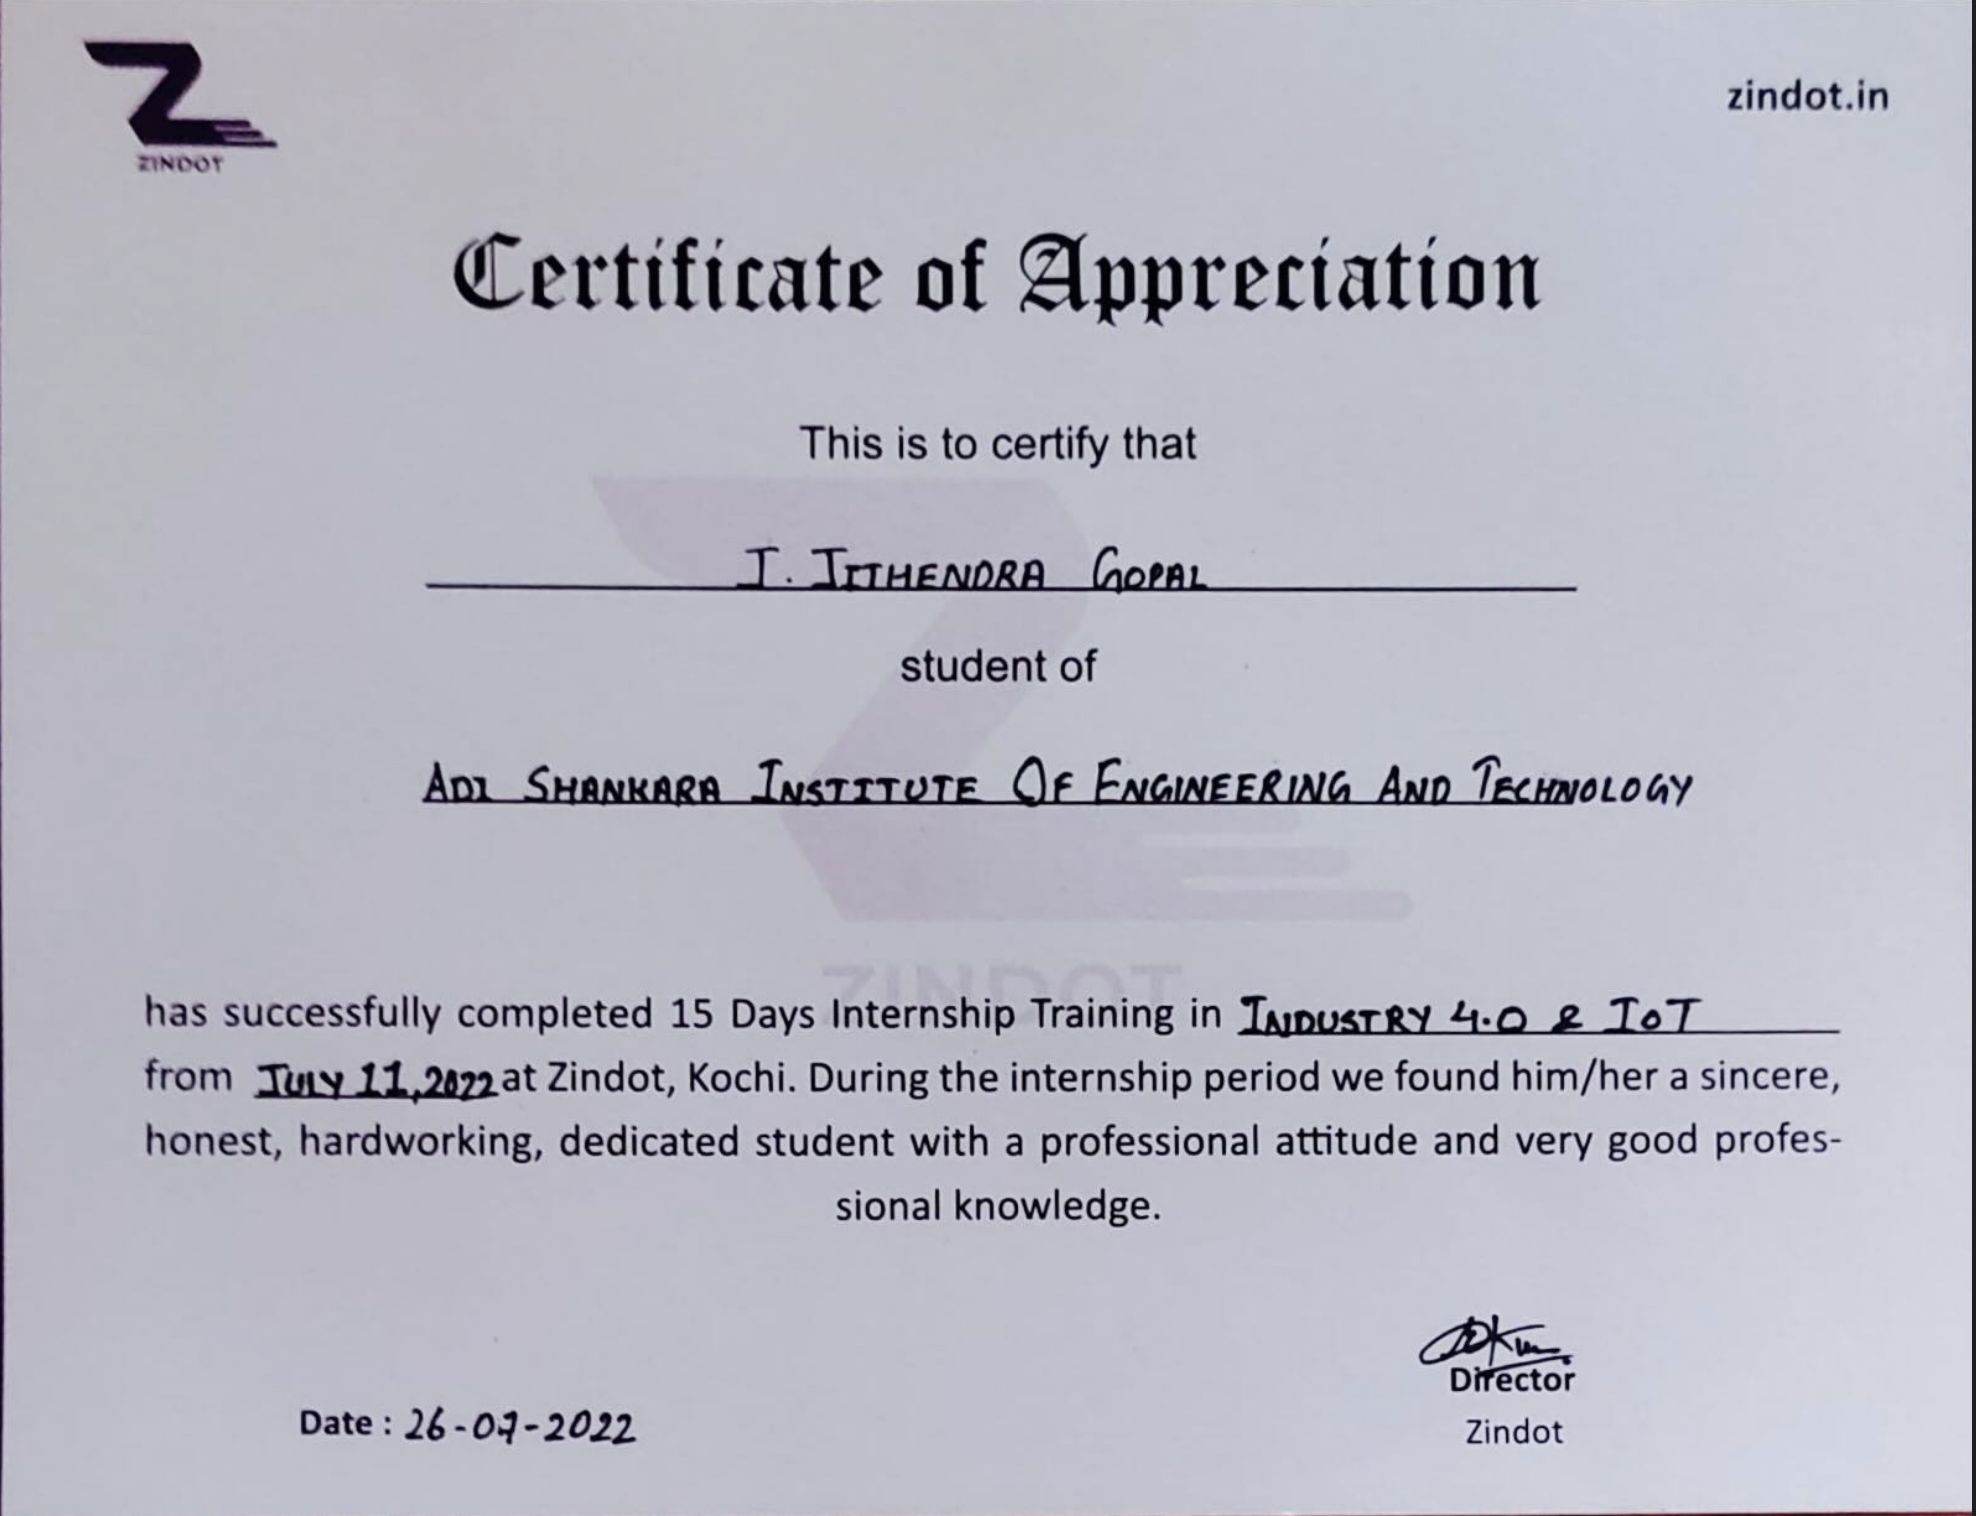 ZINDOT
zindot.in
Certificate of Appreciation
This is to certify that
J. JITHENDRA GOPAL
student of
ADI SHANKARA INSTITUTE OF ENGINEERING AND TECHNOLOGY
ZINDOT
has successfully completed 15 Days Internship Training in INDUSTRY 4.0 & IoT
from JULY 11,2022 at Zindot, Kochi. During the internship period we found him/her a sincere,
honest, hardworking, dedicated student with a professional attitude and very good profes-
sional knowledge.
Director
Zindot
Date : 26-07-2022